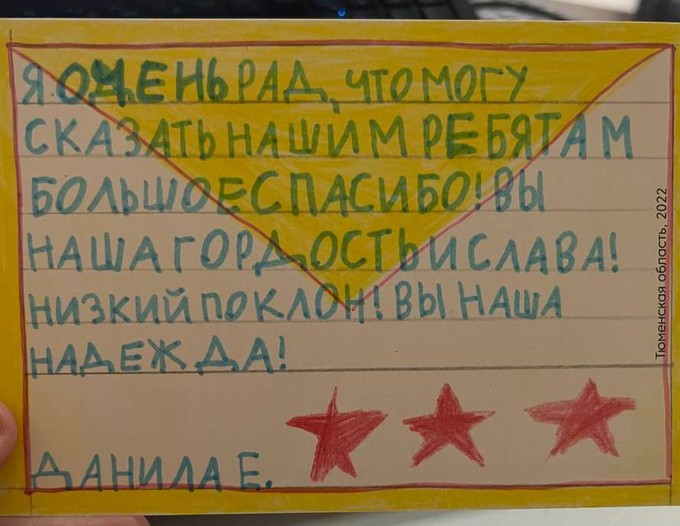 Я ОЧЕНЬ РАД, ЧТО МОГУ
СКАЗАТЬ НАШИМ РЕБЯТАМ
БОЛЬШОЕ СПАСИБО! ВЫ
НАША ГОРДОСТЬ И СЛАВА!
НИЗКИЙ ПОКЛОН! ВЫ НАША
НАДЕЖДА!
ДАНИЛА Е.
Тюменская область, 2022